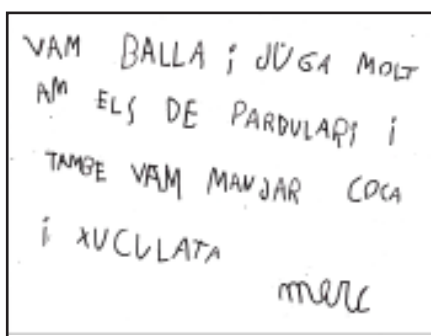 VAM BALLA i JUGA MOLT
AM ELS DE PARDULARI i
TAMBE VAM MANJAR COCA
i XUCULATA
merc